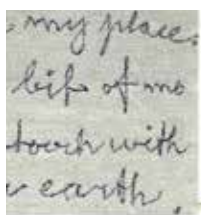 my place.
of me
touch with
earth,